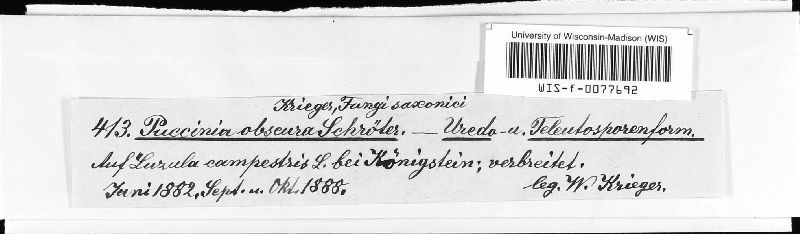 University of Wisconsin-Madison (WIS)
WIS-f-0077692
Krieger, Fungi saxonici
413. Puccinia obscura Schröter. — Uredo- u. Teleutosporenform.
Auf Luzula campestris L. bei Königstein; verbreitet.
Juni 1882, Sept. u. Okt. 1888. leg. W. Krieger.